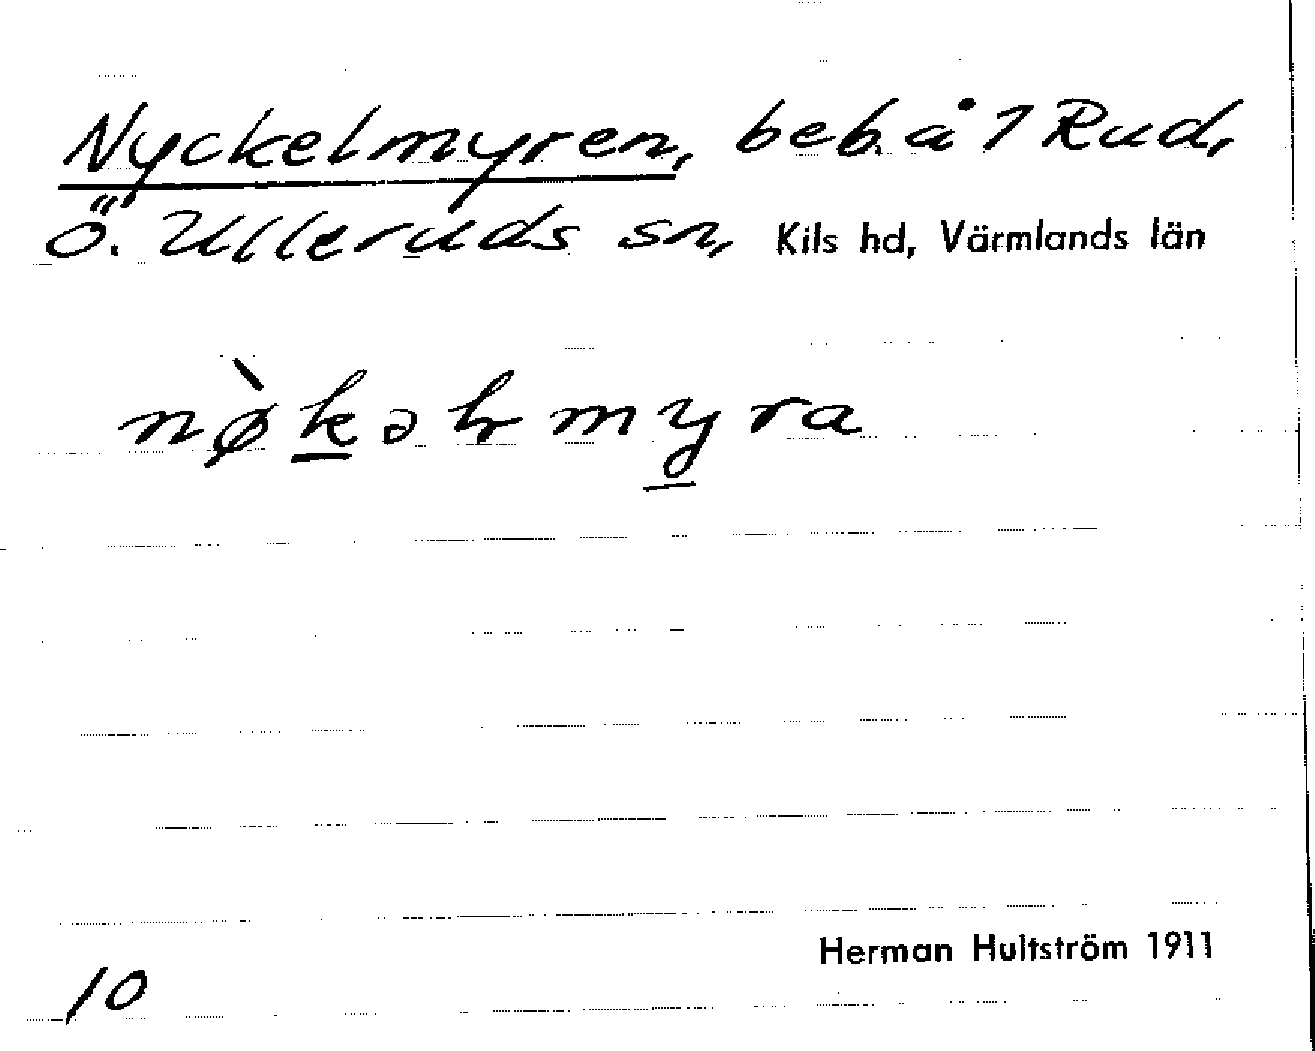 Nyckelmyren, beb. å 1 Rud,
Ö. Ulleruds sn, Kils hd, Värmlands län
nø̀kəl myra
Herman Hultström 1911
10